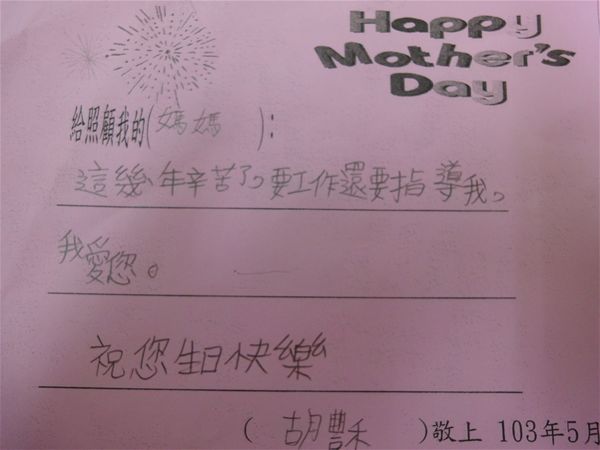 Happy
Mother's
Day
給照顧我的(媽媽):
這幾年辛苦了,要工作還要指導我。
我愛您。
祝您生日快樂
(胡豐禾)敬上 103年5月